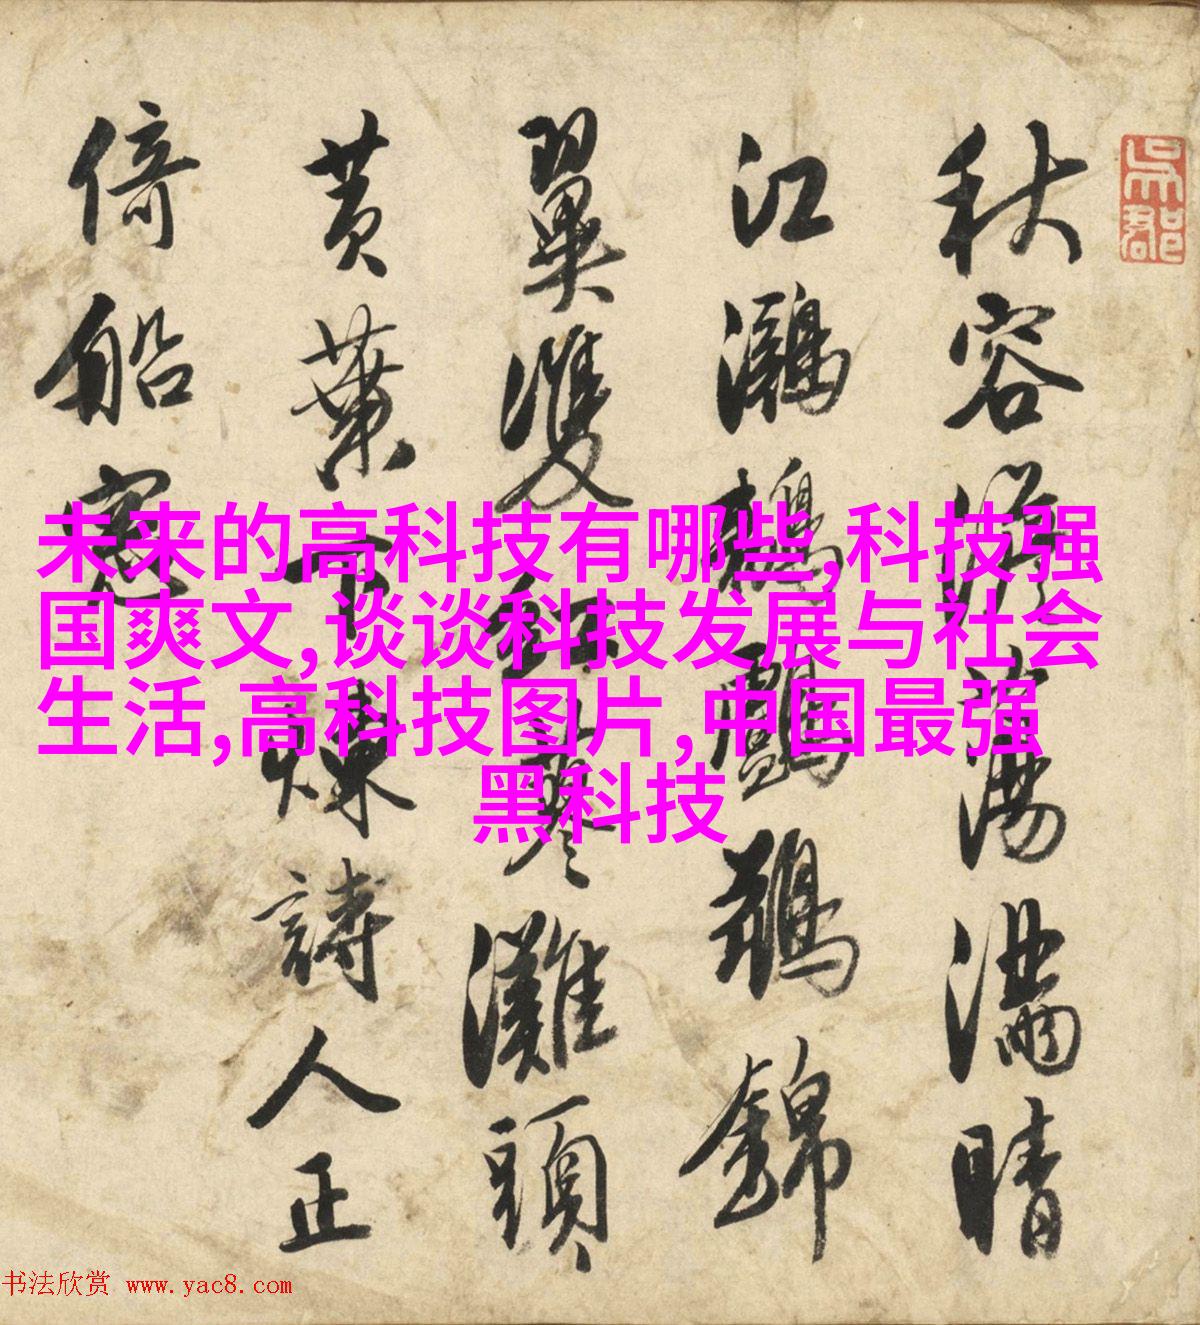 吳郡
秋容澹蕩滿晴
江鸂鶒鸕鶿錦
翼雙紅蓼灘頭
黄葉下煉詩人正
倚船窓
未来的高科技有哪些,科技强
国爽文,谈谈科技发展与社会
生活,高科技图片,中国最强
黑科技
书法欣赏 www.yac8.com